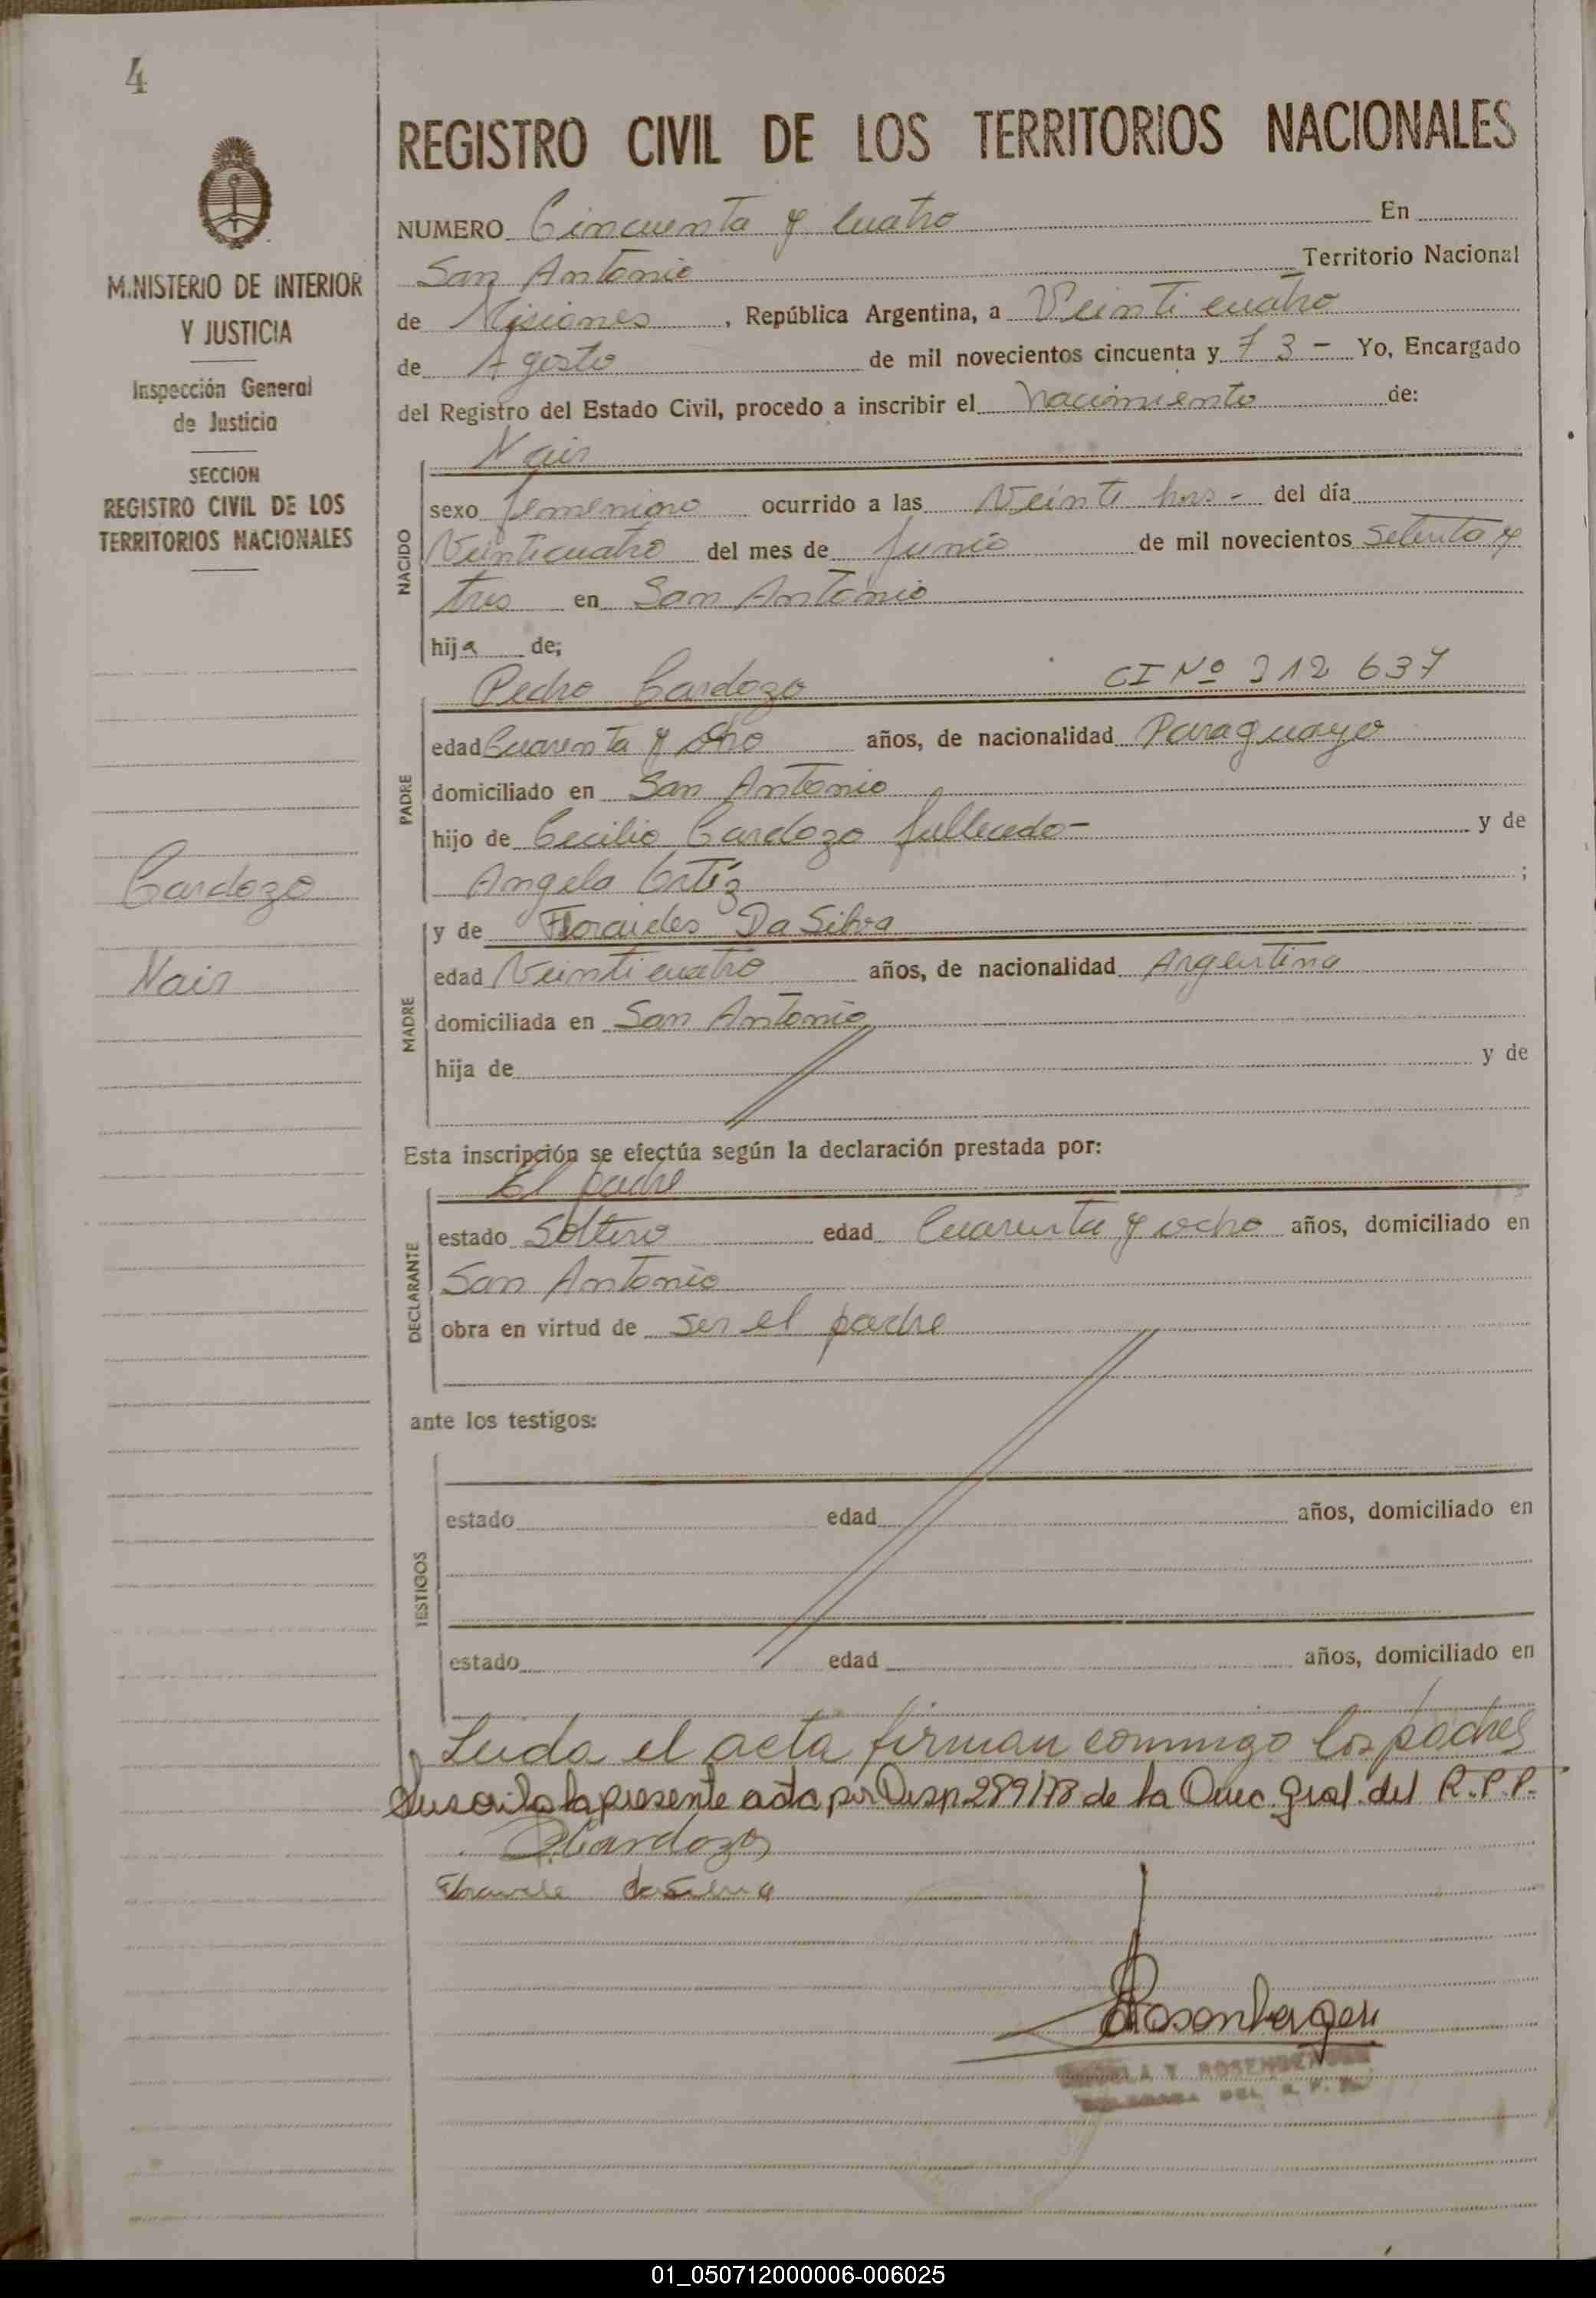 4
REGISTRO CIVIL DE LOS TERRITORIOS NACIONALES
MINISTERIO DE INTERIOR
Y JUSTICIA
Inspección General
de Justicia
SECCION
REGISTRO CIVIL DE LOS
TERRITORIOS NACIONALES
Cardozo
Nair
NUMERO Cincuenta y Cuatro En
San Antonio Territorio Nacional
de Misiones, República Argentina, a Veinticuatro
de Agosto de mil novecientos cincuenta y 73 - Yo, Encargado
del Registro del Estado Civil, procedo a inscribir el nacimiento de:
Nair
NACIDO
sexo femenino ocurrido a las Veinte hors - del día
Veinticuatro del mes de Junio de mil novecientos setenta y
tres en San Antonio
hija de;
Pedro Cardozo CI Nº 212 637
PADRE
edad Cuarenta y Ocho años, de nacionalidad Paraguayo
domiciliado en San Antonio
hijo de Cecilio Cardozo fallecido - y de
Angela Ortíz ;
MADRE
y de Floraides Da Silva
edad Veinticuatro años, de nacionalidad Argentina
domiciliada en San Antonio
hija de y de
Esta inscripción se efectúa según la declaración prestada por:
El padre
DECLARANTE
estado Soltero edad Cuarenta y ocho años, domiciliado en
San Antonio
obra en virtud de ser el padre
ante los testigos:
TESTIGOS
estado edad años, domiciliado en
estado edad años, domiciliado en
Leida el acta firman conmigo los padres
Suscrita la presente acta por Disp. 289/78 de la Direc. Gral. del R.P.P.
PCardozo
da Silva
Rosenberger
ROSENBERGER
DEL R. P.
01_050712000006-006025